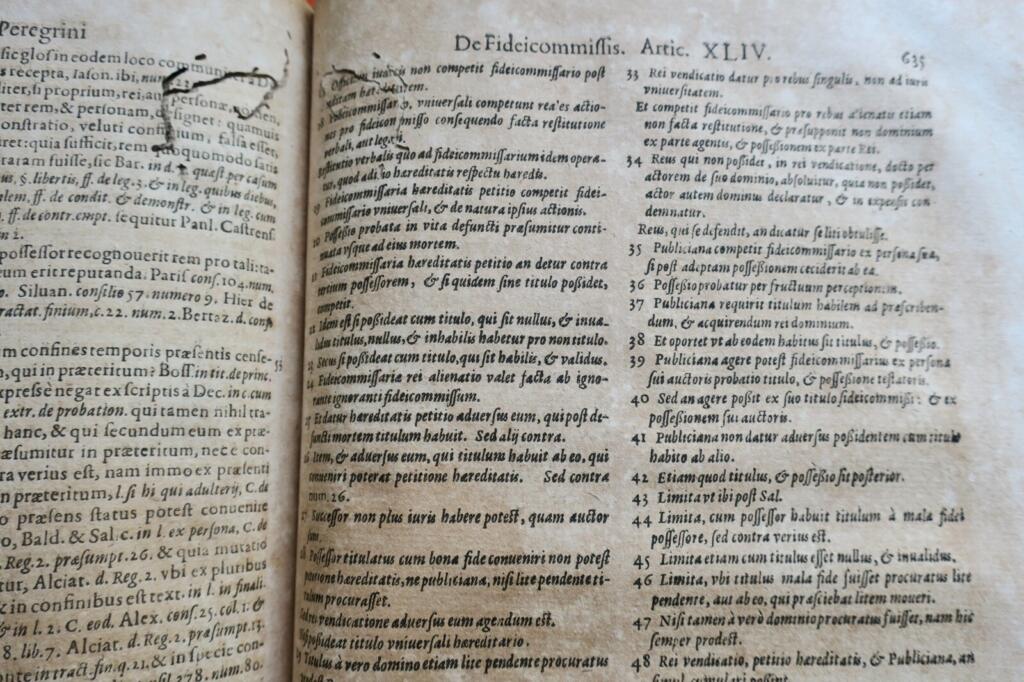 Peregrini
sic glos in eodem loco communi
s recepta, Iason. ibi, num. 22.
liter, si proprium, rei, aut personæ nomen,
ter rem, & personam, designet: quamuis
onstratio, veluti confinium, falsa esset,
ret: quia sufficit, rem quoquomodo satis
tratam fuisse, sic Bar. in d. quæst per casum
us, §. libertis, ff. de leg. 3. & in leg. quibus diebus,
alem, ff. de condit. & demonstr. & in leg. cum
ff. de contr. empt. sequitur Paul. Castrens.
in 2.
possessor recognouerit rem pro tali: ta-
eum erit reputanda. Paris cons. 104. num.
o. Siluan. consilio 57. numero 9. Hier de
tractat. finium, c. 22. num. 2. Bertaz. d. cons
m confines temporis præsentis cense-
, qui in præteritum? Boss in tit. de princ.
xpresse negat ex scriptis à Dec. in c. cum
extr. de probation. qui tamen nihil tra-
hanc, & qui secundum eum ex præ-
æsumitur in præteritum, nec e con-
ra verius est, nam immo ex præsenti
n præteritum, l. si hi qui adulterij, C. de
o præsens status potest conuenire
o, Bald. & Sal. c. in l. ex persona, C. de
. Reg. 2. præsumpt. 26. & quia mutatio
tur, Alciat. d. Reg. 2. vbi ex pluribus
& in confinibus est text. in l. in finali.
& in l. 2. C. eod. Alex. cons. 25. col. 1. &
8. lib. 7. Alciat. d. Reg. 2. præsumpt. 13.
ente in tract. fin. q. 21. & in specie con-
sil. 278. num. 80.
De Fideicommissis. Artic. XLIV.
635
Officium iudicis non competit fideicommissario post
Fideicommissario, vniuersali competunt reales actio-
nes pro fideicommisso consequendo facta restitutione
verbali, aut
Restitutio verbalis quo ad fideicommissarium idem opera-
tur, quod aditio hæreditatis respectu hæredis.
Fideicommissaria hæreditatis petitio competit fidei-
commissario vniuersali, & de natura ipsius actionis.
20 Possessio probata in vita defuncti præsumitur conti-
nuata vsque ad eius mortem.
Fideicommissaria hæreditatis petitio an detur contra
tertium possessorem, & si quidem sine titulo possidet,
competit.
Idem est si possideat cum titulo, qui sit nullus, & inua-
lidus titulus, nullus, & inhabilis habetur pro non titulo.
Secus si possideat cum titulo, qui sit habilis, & validus.
24 Fideicommissaria rei alienatio valet facta ab igno-
rante ignoranti fideicommissum.
Et datur hæreditatis petitio aduersus eum, qui post de-
functi mortem titulum habuit. Sed alij contra.
Item, & aduersus eum, qui titulum habuit ab eo, qui
conueniri poterat petitione hæreditatis. Sed contra
num. 26.
27 Successor non plus iuris habere potest, quam auctor
suus.
28 Possessor titulatus cum bona fide conueniri non potest
petitione hæreditatis, ne publiciana, nisi lite pendente ti-
tulum procurasset.
Sed rei vendicatione aduersus eum agendum est.
possideat titulo vniuersali hæreditario.
Titulus à vero domino etiam lite pendente procuratus
33 Rei vendicatio datur pro rebus singulis, non ad iuris
vniuersitatem.
Et competit fideicommissario pro rebus alienatis etiam
non facta restitutione, & præsupponit non dominium
ex parte agentis, & possessionem ex parte Rei.
34 Reus qui non possidet, in rei vendicatione, docto per
actorem de suo dominio, absoluitur, quia non possidet,
actor autem dominus declaratur, & in expensis con-
demnatur.
Reus, qui se defendit, an dicatur se liti obtulisse.
35 Publiciana competit fideicommissario ex persona sua,
si post adeptam possessionem ceciderit ab ea.
36 Possessio probatur per fructuum perceptionem.
37 Publiciana requirit titulum habilem ad præscriben-
dum, & acquirendum rei dominium.
38 Et oportet vt ab eodem habitus sit titulus, & possessio.
39 Publiciana agere potest fideicommissarius ex persona
sui auctoris probatio titulo, & possessione testatoris.
40 Sed an agere possit ex suo titulo fideicommissi: & ex
possessionem sui auctoris.
41 Publiciana non datur aduersus possidentem cum titulo
habito ab alio.
42 Etiam quod titulus, & possessio sit posterior.
43 Limita vt ibi post Sal.
44 Limita, cum possessor habuit titulum à mala fidei
possessore, sed contra verius est.
45 Limita etiam cum titulus esset nullus, & inualidus.
46 Limita, vbi titulus mala fide fuisset procuratus lite
pendente, aut ab eo, qui præsciebat litem moueri.
47 Nisi tamen à verò dominio procuratus fuisset, nam hic
semper prodest.
48 Rei vendicatio, petitio hæreditatis, & Publiciana, an
simul cumulari possint.